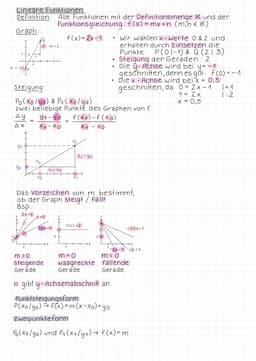 Lineare Funktionen
Definition: Alle Funktionen mit der Definitionsmenge ℝ und der
Funktionsgleichung: f(x)=mx+n (m;n∈ℝ)
Graph:
f(x)=2x-1
• Wir wählen x-Werte 0 & 2 und
erhalten durch Einsetzen die
Punkte P(0|-1) & Q(2|3)
• Steigung der Geraden: 2
• Die y-Achse wird bei y=-1
geschnitten, denn es gilt: f(0)=-1
• Die x-Achse wird bei x=0,5
geschnitten, da 0=2x-1 |+1
1=2x |:2
x=0,5
Steigung:
P₀(x₀/y₀) & P₁(x₁/y₁)
zwei beliebige Punkte des Graphen von f.
Das Vorzeichen von m bestimmt,
ob der Graph steigt / fällt
Bsp.
m>0 m=0 m<0
steigende waagrechte fallende
Gerade Gerade Gerade
n gibt y-Achsenabschnitt an
Punktsteigungsform
P(x₀/y₀) → f(x)=m(x-x₀)+y₀
Zweipunkteform
P₀(x₀/y₀) und P₁(x₁/y₁) → f(x)=m